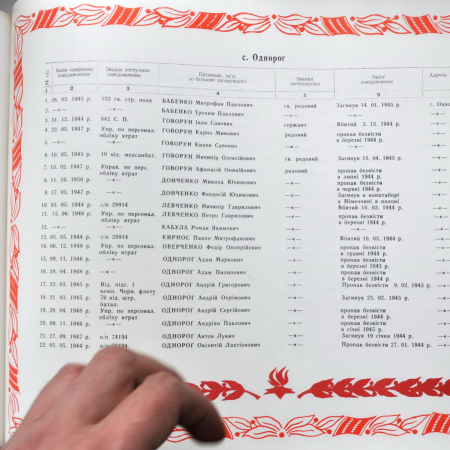 с. Однорог
№ п/п Коли одержано повідомлення Звідки поступило повідомлення Прізвище, ім'я, по батькові загиблого Звання загиблого Зміст повідомлення Адреса
1 2 3 4 5 6
1. 28. 02. 1945 р. 132 гв. стр. полк БАБЕНКО Митрофан Павлович гв. рядовий Загинув 14. 01. 1945 р. с. Одно
2. —«— —«— БАБЕНКО Трохим Павлович —«— —«—
3. 31. 12. 1944 р. 642 С. П. ГОВОРУН Іван Савович сержант Вбитий 3. 12. 1944 р.
4. 22. 03. 1947 р. Упр. по персонал. обліку втрат ГОВОРУН Карпо Минович рядовий пропав безвісти в березні 1944 р.
5. —«— —«— ГОВОРУН Кирик Савович —«— —«—
6. 10. 05. 1945 р. 10 від. медсанбат. ГОВОРУН Ничипір Олексійович гв. рядовий Загинув 15. 04. 1945 р.
7. 15. 02. 1947 р. Управ. по перс. обліку втрат ГОВОРУН Афанасій Омикійович рядовий пропав безвісти в липні 1944 р.
8. 11. 10. 1950 р. —«— ДОНЧЕНКО Микола Юхимович —«— пропав безвісти в червні 1944 р.
9. 17. 03. 1947 р. —«— ДОНЧЕНКО Феодосій Юхимович —«— Загинув в концтаборі в Німеччині в полоні
10. 05. 05. 1944 р. п/п 28914 ЛЕВЧЕНКО Ничипір Гаврилович —«— Вбитий 10. 03. 1944 р.
11. 15. 06. 1946 р. Упр. по персонал. обліку втрат ЛЕВЧЕНКО Петро Гаврилович —«— пропав безвісти в березні 1944 р.
12. —«— —«— КАБУЛА Роман Якимович —«— —«—
13. 05. 05. 1944 р. п/п 28914 КИРНОС Павло Митрофанович —«— Вбитий 10. 03. 1944 р.
14. 06. 12. 1948 р. Упр. по персонал. обліку втрат ОВЕРЧЕНКО Федір Онопрійович —«— пропав безвісти в травні 1944 р.
15. 09. 11. 1946 р. —«— ОДНОРОГ Адам Маркович —«— пропав безвісти в березні 1943 р.
16. 28. 04. 1948 р. —«— ОДНОРОГ Адам Пилипович —«— пропав безвісти в березні 1944 р.
17. 23. 03. 1945 р. Від. підг. і комп. Чорн. флоту ОДНОРОГ Андрій Григорович —«— Пропав безвісти 9. 02. 1943 р.
18. 21. 03. 1945 р. 76 від. штр. батал. ОДНОРОГ Андрій Охрімович —«— Загинув 23. 02. 1945 р.
19. 28. 04. 1948 р. Упр. по персонал. обліку втрат ОДНОРОГ Андрій Сергійович —«— пропав безвісти в березні 1944 р.
20. 09. 11. 1946 р. —«— ОДНОРОГ Андріян Павлович —«— пропав безвісти в січні 1945 р.
21. 27. 09. 1947 р. п/п 74194 ОДНОРОГ Антон Лукич —«— Загинув 19 січня 1944 р.
22. 05. 05. 1944 р. п/п 74194 ОДНОРОГ Оксентій Лахтіонович —«— Пропав безвісти 27. 01. 1944 р.